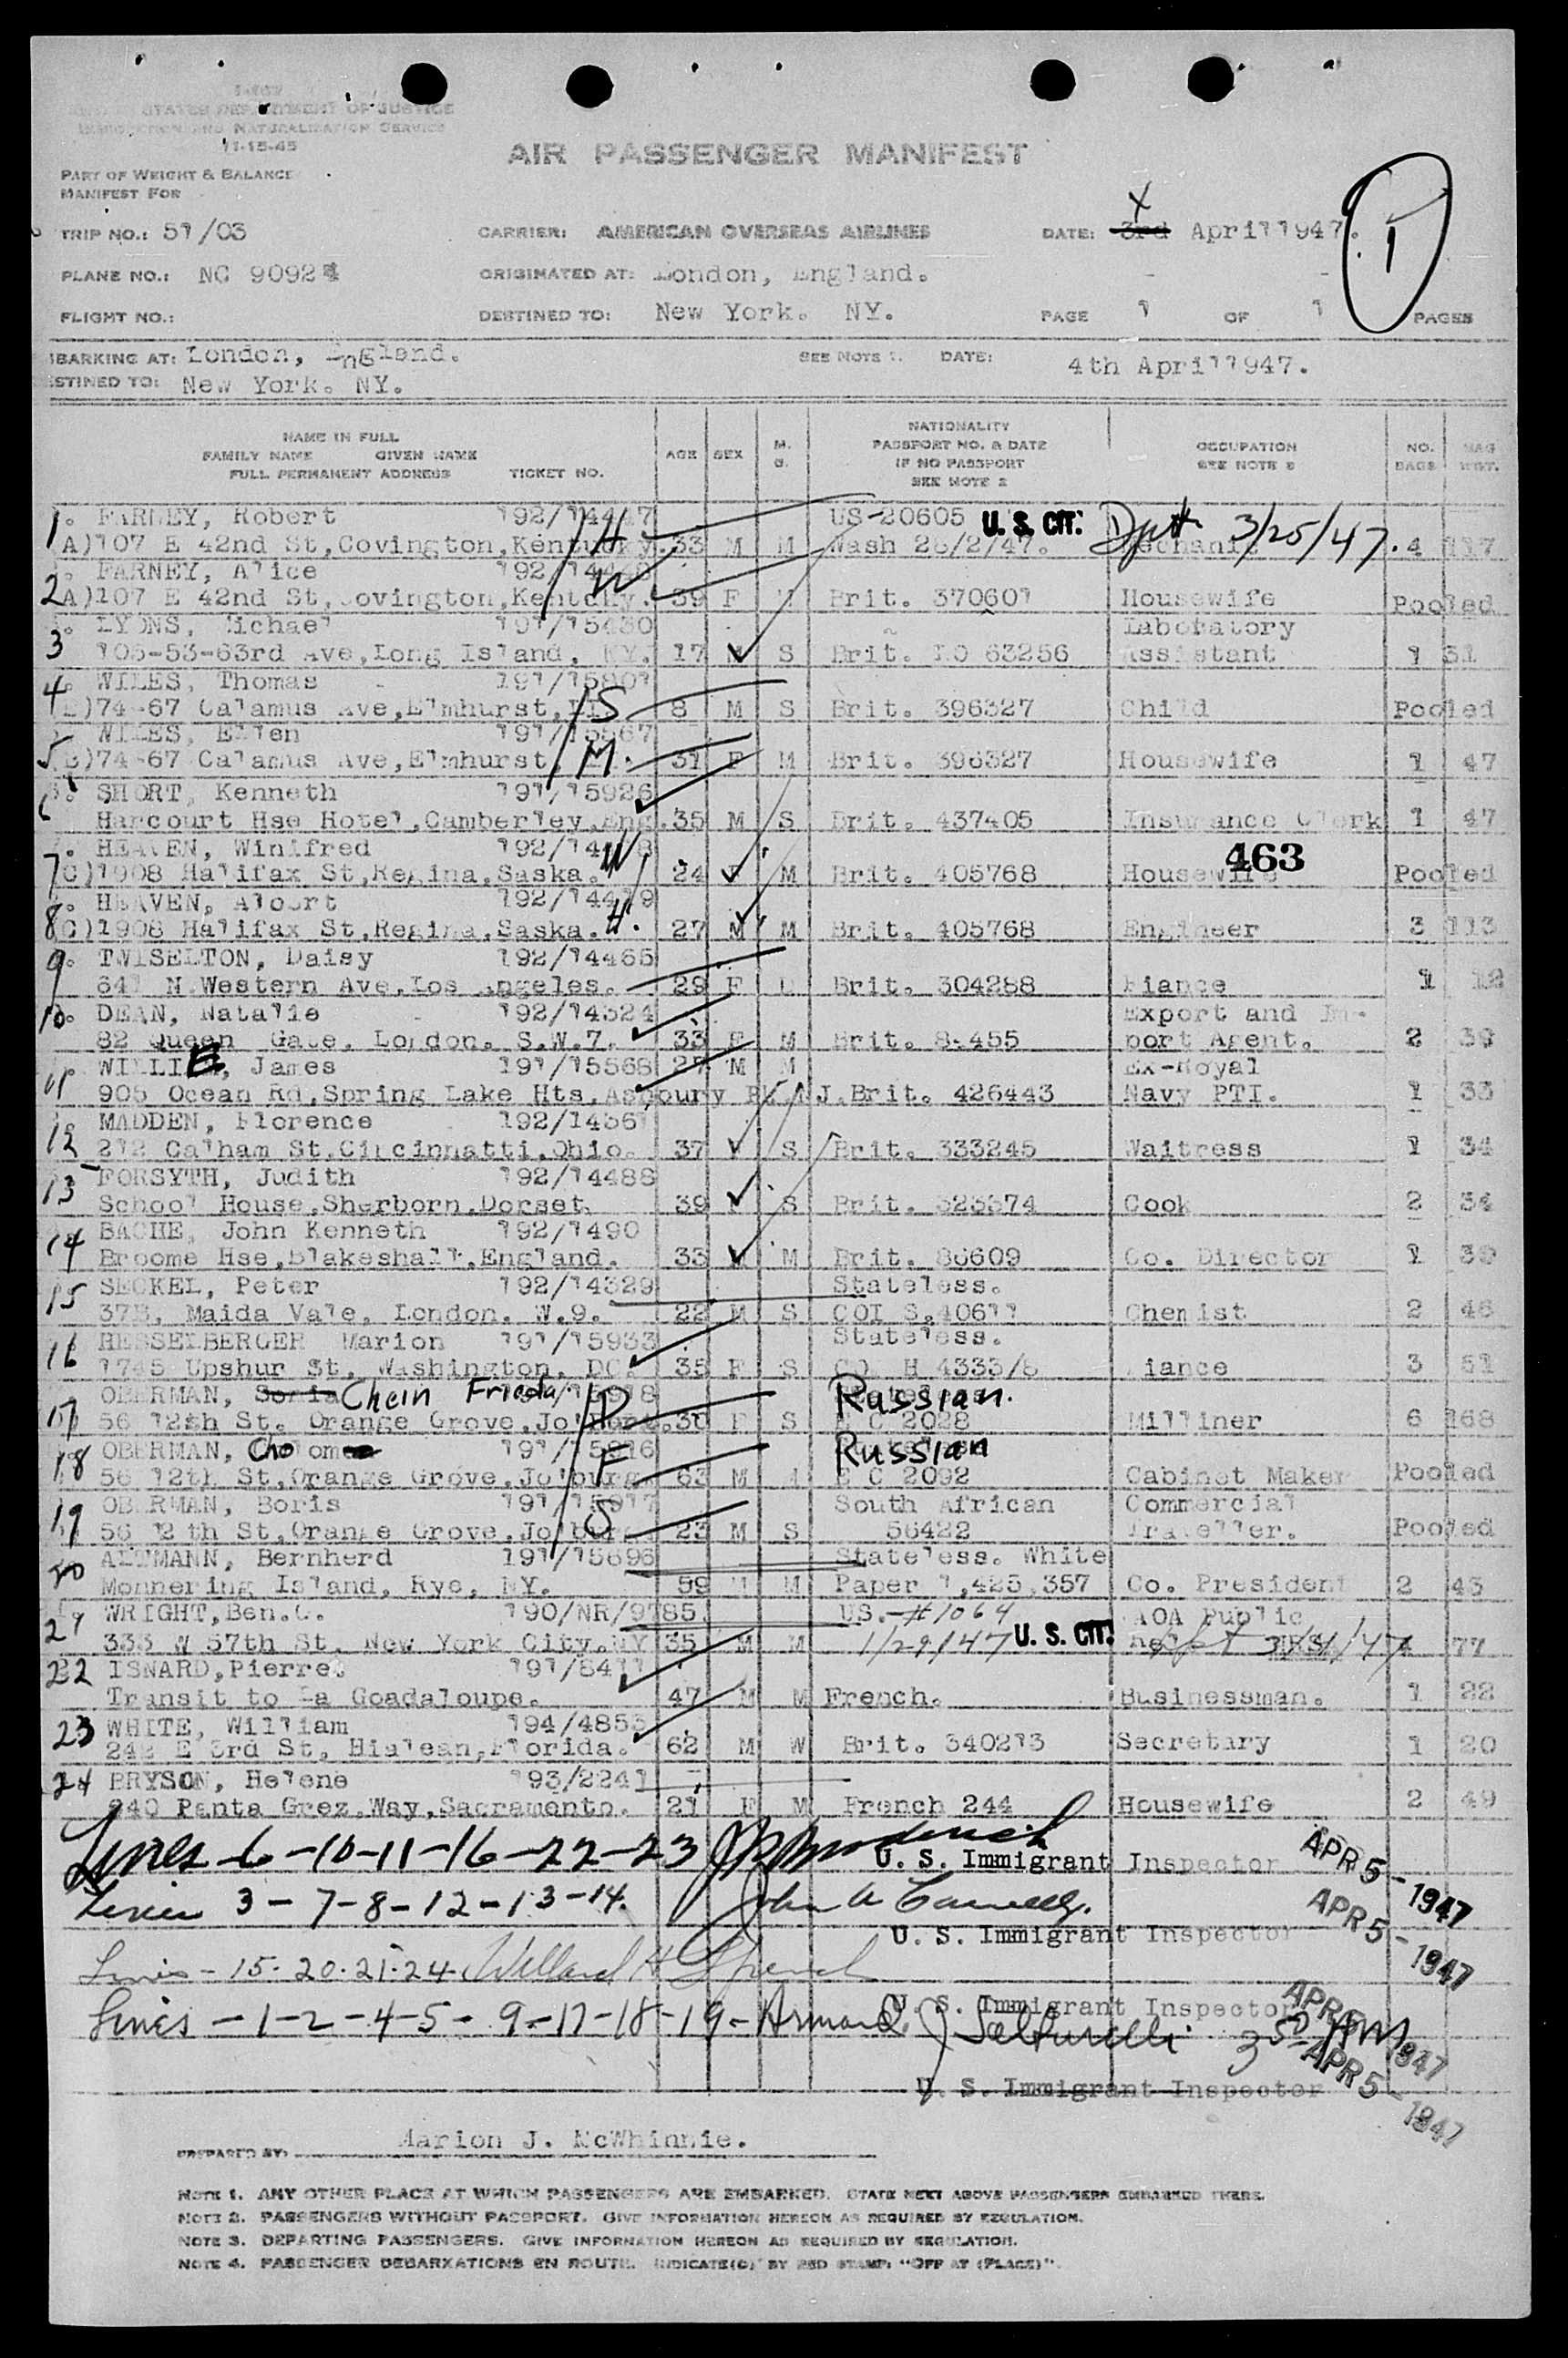 I-467
UNITED STATES DEPARTMENT OF JUSTICE
IMMIGRATION AND NATURALIZATION SERVICE
11-15-45
AIR PASSENGER MANIFEST
PART OF WEIGHT & BALANCE
MANIFEST FOR
TRIP NO.: 51/03 CARRIER: AMERICAN OVERSEAS AIRLINES DATE: 3rd April 1947. 1
PLANE NO.: NC 90924 ORIGINATED AT: London, England.
FLIGHT NO.: DESTINED TO: New York. NY. PAGE 1 OF 1 PAGES
MBARKING AT: London, England. SEE NOTE 1. DATE: 4th April 1947.
ESTINED TO: New York. NY.
NAME IN FULL
FAMILY NAME GIVEN NAME
FULL PERMANENT ADDRESS TICKET NO. AGE SEX M. S. NATIONALITY
PASSPORT NO. & DATE
IF NO PASSPORT
SEE NOTE 2 OCCUPATION
SEE NOTE 3 NO. BAGS BAG WGT.
1. FARNEY, Robert 192/14447 H US-20605 U. S. CIT. Dpt. 3/25/47.
A) 107 E 42nd St, Covington, Kentucky. 33 M M Wash 26/2/47. Mechanic 4 117
2. FARNEY, Alice 192/14448 W
A) 107 E 42nd St, Covington, Kentucky. 39 F M Brit. 370601 Housewife Pooled
3. LYONS, Michael 191/15430 Laboratory
105-53-63rd Ave, Long Island, NY. 17 M S Brit. LO 63256 Assistant 1 31
4. WILES, Thomas 191/15801 S
B) 74-67 Calamus Ave, Elmhurst, LI. 8 M S Brit. 396327 Child Pooled
5. WILES, Ellen 191/15567 M.
B) 74-67 Calamus Ave, Elmhurst, LI. 31 F M Brit. 396327 Housewife 1 47
6. SHORT, Kenneth 191/15926
Harcourt Hse Hotel, Camberley, Eng. 35 M S Brit. 437405 Insurance Clerk 1 47
7. HEAVEN, Winifred 192/14478 W 463
C) 1908 Halifax St, Regina, Saska. 24 F M Brit. 405768 Housewife Pooled
8. HEAVEN, Albert 192/14479 H.
C) 1908 Halifax St, Regina, Saska. 27 M M Brit. 405768 Engineer 3 113
9. TWISELTON, Daisy 192/14465
641 N Western Ave, Los Angeles. 29 F D Brit. 304288 Fiance 1 12
10. DEAN, Natalie 192/14324 Export and Im-
82 Queen Gate, London. S.W.7. 33 F M Brit. 8455 port Agent. 2 39
11 WILLIE, James 191/15568 27 M M Ex-Royal
905 Ocean Rd, Spring Lake Hts, Asbury Pk. NJ. Brit. 426443 Navy PTI. 1 33
12 MADDEN, Florence 192/14361
212 Calham St, Cincinnatti, Ohio. 37 F S Brit. 333245 Waitress 1 34
13 FORSYTH, Judith 192/14488
School House, Sherborn, Dorset. 39 F S Brit. 323374 Cook 2 34
14 BACHE, John Kenneth 192/1490
Broome Hse, Blakeshall, England. 33 M M Brit. 86609 Co. Director 1 39
15 SECKEL, Peter 192/14329 Stateless.
37B, Maida Vale, London. W.9. 22 M S COI S.40611 Chemist 2 46
16 HESSELBERGER Marion 191/15933 Stateless.
1745 Upshur St, Washington, DC. 35 F S COI H 4333/6 Fiance 3 51
17 OBERMAN, Sonia Chein Frieda. 191/15918 D Russian.
56 12th St. Orange Grove, Jo'burg. 30 F S E C 2028 Milliner 6 168
18 OBERMAN, Cholome 191/15916 F Russian
56 12th St, Orange Grove, Jo'burg 63 M M E C 2092 Cabinet Maker Pooled
19 OBERMAN, Boris 191/15917 S South African Commercial
56 12th St, Orange Grove, Jo'burg. 23 M S 56422 Traveller. Pooled
20 ALTMANN, Bernherd 191/15696 Stateless. White
Monnering Island, Rye, NY. 59 M M Paper 1,425,357 Co. President 2 43
21 WRIGHT, Ben. C. 190/NR/9785. US.-#1064 AOA Public
333 W 57th St. New York City. NY 35 M M 1/29/47 U. S. CIT. 77
22 ISNARD, Pierre. 191/8411
Transit to La Goadaloupe. 47 M M French. Businessman. 1 22
23 WHITE, William 194/4853
242 E 3rd St, Hialean, Florida. 62 M W Brit. 340213 Secretary 1 20
24 BRYSON, Helene 193/2241
240 Panta Grez. Way, Sacramento. 21 F M French 244 Housewife 2 49
Lines 6-10-11-16-22-23
U. S. Immigrant Inspector APR 5-1947
Lines 3-7-8-12-13-14. John
U. S. Immigrant Inspector APR 5-1947
Lines - 15. 20. 21. 24 Willard H French
U. S. Immigrant Inspector APR 5 1947
Lines -1-2-4-5-9-17-18-19- Armand J 3 50 AM
APR 5-1947
U. S. Immigrant Inspector
PREPARED BY: Marion J. McWhinnie.
NOTE 1. ANY OTHER PLACE AT WHICH PASSENGERS ARE EMBARKED. STATE NEXT ABOVE PASSENGERS EMBARKED THERE.
NOTE 2. PASSENGERS WITHOUT PASSPORT. GIVE INFORMATION HEREON AS REQUIRED BY REGULATION.
NOTE 3. DEPARTING PASSENGERS. GIVE INFORMATION HEREON AS REQUIRED BY REGULATION.
NOTE 4. PASSENGER DEBARKATIONS EN ROUTE. INDICATE(D) BY RED STAMP: "OFF AT (PLACE)".